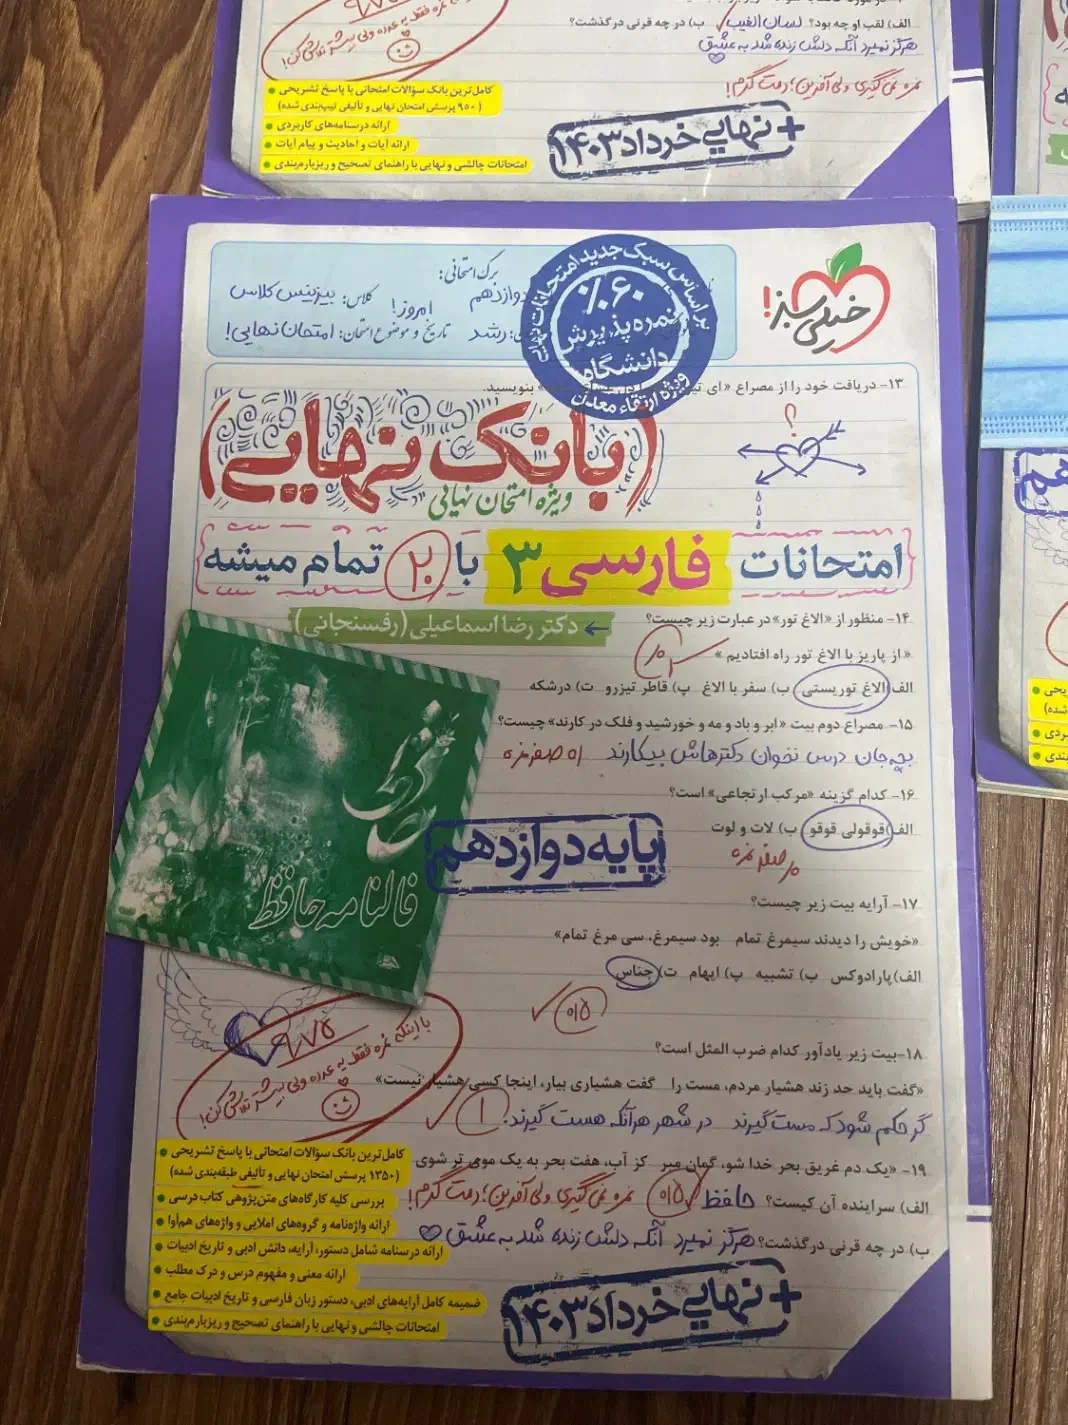 الف) لقب او چه بود؟ لسان الغیب ب) در چه قرنی درگذشت؟
هرگز نمیرد آنکه دلش زنده شد به عشق
نمره نمی‌گیری ولی آفرین؛ دمت گرم!
کامل‌ترین بانک سؤالات امتحانی با پاسخ تشریحی
(۹۵۰ پرسش امتحان نهایی و تألیفی تیپ‌بندی شده)
ارائه درسنامه‌های کاربردی
ارائه آیات و احادیث و پیام آیات
امتحانات چالشی و نهایی با راهنمای تصحیح و ریزبارم‌بندی
+ نهایی خرداد ۱۴۰۳
خیلی سبز!
برگ امتحانی:
دوازدهم
امروز! کلاس: بیزینس کلاس
رشد تاریخ و موضوع امتحان: امتحان نهایی!
بر اساس سبک جدید امتحانات نهایی
۶۰٪
نمره پذیرش
دانشگاه
ویژه ارتقاء معدل
۱۳- دریافت خود را از مصراع «ای بنویسید.
؟
(بانک نهایی)
ویژه امتحان نهایی
امتحانات فارسی ۳ با ۲۰ تمام میشه
دکتر رضا اسماعیلی (رفسنجانی)
۱۴- منظور از «الاغ تور» در عبارت زیر چیست؟
«از پاریز با الاغ تور راه افتادیم»
الف) الاغ توریستی ب) سفر با الاغ پ) قاطر تیزرو ت) درشکه
۱۵- مصراع دوم بیت «ابر و باد و مه و خورشید و فلک در کارند» چیست؟
بچه جان درس نخوان دکترهاش بیکارند اه صفر نمره
۱۶- کدام گزینه «مرکب ارتجاعی» است؟
الف) قوقولی قوقو ب) لات و لوت
صفر نمره
پایه دوازدهم
فالنامه حافظ
۱۷- آرایه بیت زیر چیست؟
«خویش را دیدند سیمرغ تمام بود سیمرغ، سی مرغ تمام»
الف) پارادوکس ب) تشبیه پ) ایهام ت) جناس
۰/۵
۱۸- بیت زیر یادآور کدام ضرب المثل است؟
«گفت باید حد زند هشیار مردم، مست را گفت هشیاری بیار، اینجا کسی هشیار نیست»
گر حکم شود که مست گیرند در شهر هر آنکه هست گیرند. ۱
۱۹- «یک دم غریق بحر خدا شو، گمان مبر کز آب، هفت بحر به یک موی تر شوی
الف) سراینده آن کیست؟ حافظ ۰/۵ نمره نمی‌گیری ولی آفرین؛ دمت گرم!
ب) در چه قرنی درگذشت؟ هرگز نمیرد آنکه دلش زنده شد به عشق
۹/۷۵
با اینکه نمره فقط یه عدده ولی بیشتر تلاش کن!
کامل‌ترین بانک سؤالات امتحانی با پاسخ تشریحی
(۱۳۵۰ پرسش امتحان نهایی و تألیفی طبقه‌بندی شده)
بررسی کلیه کارگاه‌های متن‌پژوهی کتاب درسی
ارائه واژه‌نامه و گروه‌های املایی و واژه‌های هم‌آوا
ارائه درسنامه شامل دستور، آرایه، دانش ادبی و تاریخ ادبیات
ارائه معنی و مفهوم درس و درک مطلب
ضمیمه کامل آرایه‌های ادبی، دستور زبان فارسی و تاریخ ادبیات جامع
امتحانات چالشی و نهایی با راهنمای تصحیح و ریزبارم‌بندی
+ نهایی خرداد ۱۴۰۳